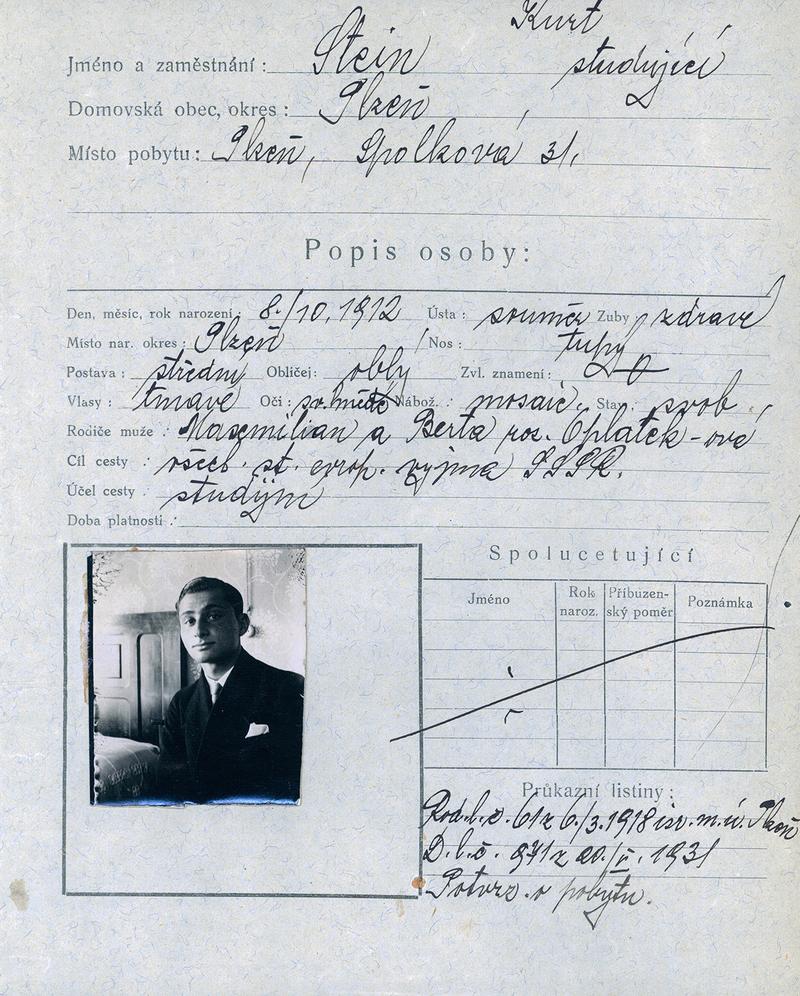 Kurt
Jméno a zaměstnání: Stein studující
Domovská obec, okres: Plzeň,
Místo pobytu: Plzeň, Spolková 31.
Popis osoby:
Den, měsíc, rok narození: 8./10. 1912 Ústa: souměr Zuby: zdravé
Místo nar. okres: Plzeň Nos: tupý
Postava: střední Obličej: oblý Zvl. znamení: 0
Vlasy: tmavé Oči: sv. hnědé Nábož.: mosaic. Stav: svob.
Rodiče muže: Maxmilian a Berta roz. Oplatek-ová
Cíl cesty: všech. st. evrop. vyjma SSSR.
Účel cesty studijní
Doba platnosti:
Spolucetující
Jméno Rok naroz. Příbuzenský poměr Poznámka
Průkazní listiny:
Rod. l. č. 61 z 6./3. 1918 isr. m. ú. Plzeň
D. l. č. 971 z 20./II. 1931
Potvrz. o pobytu.